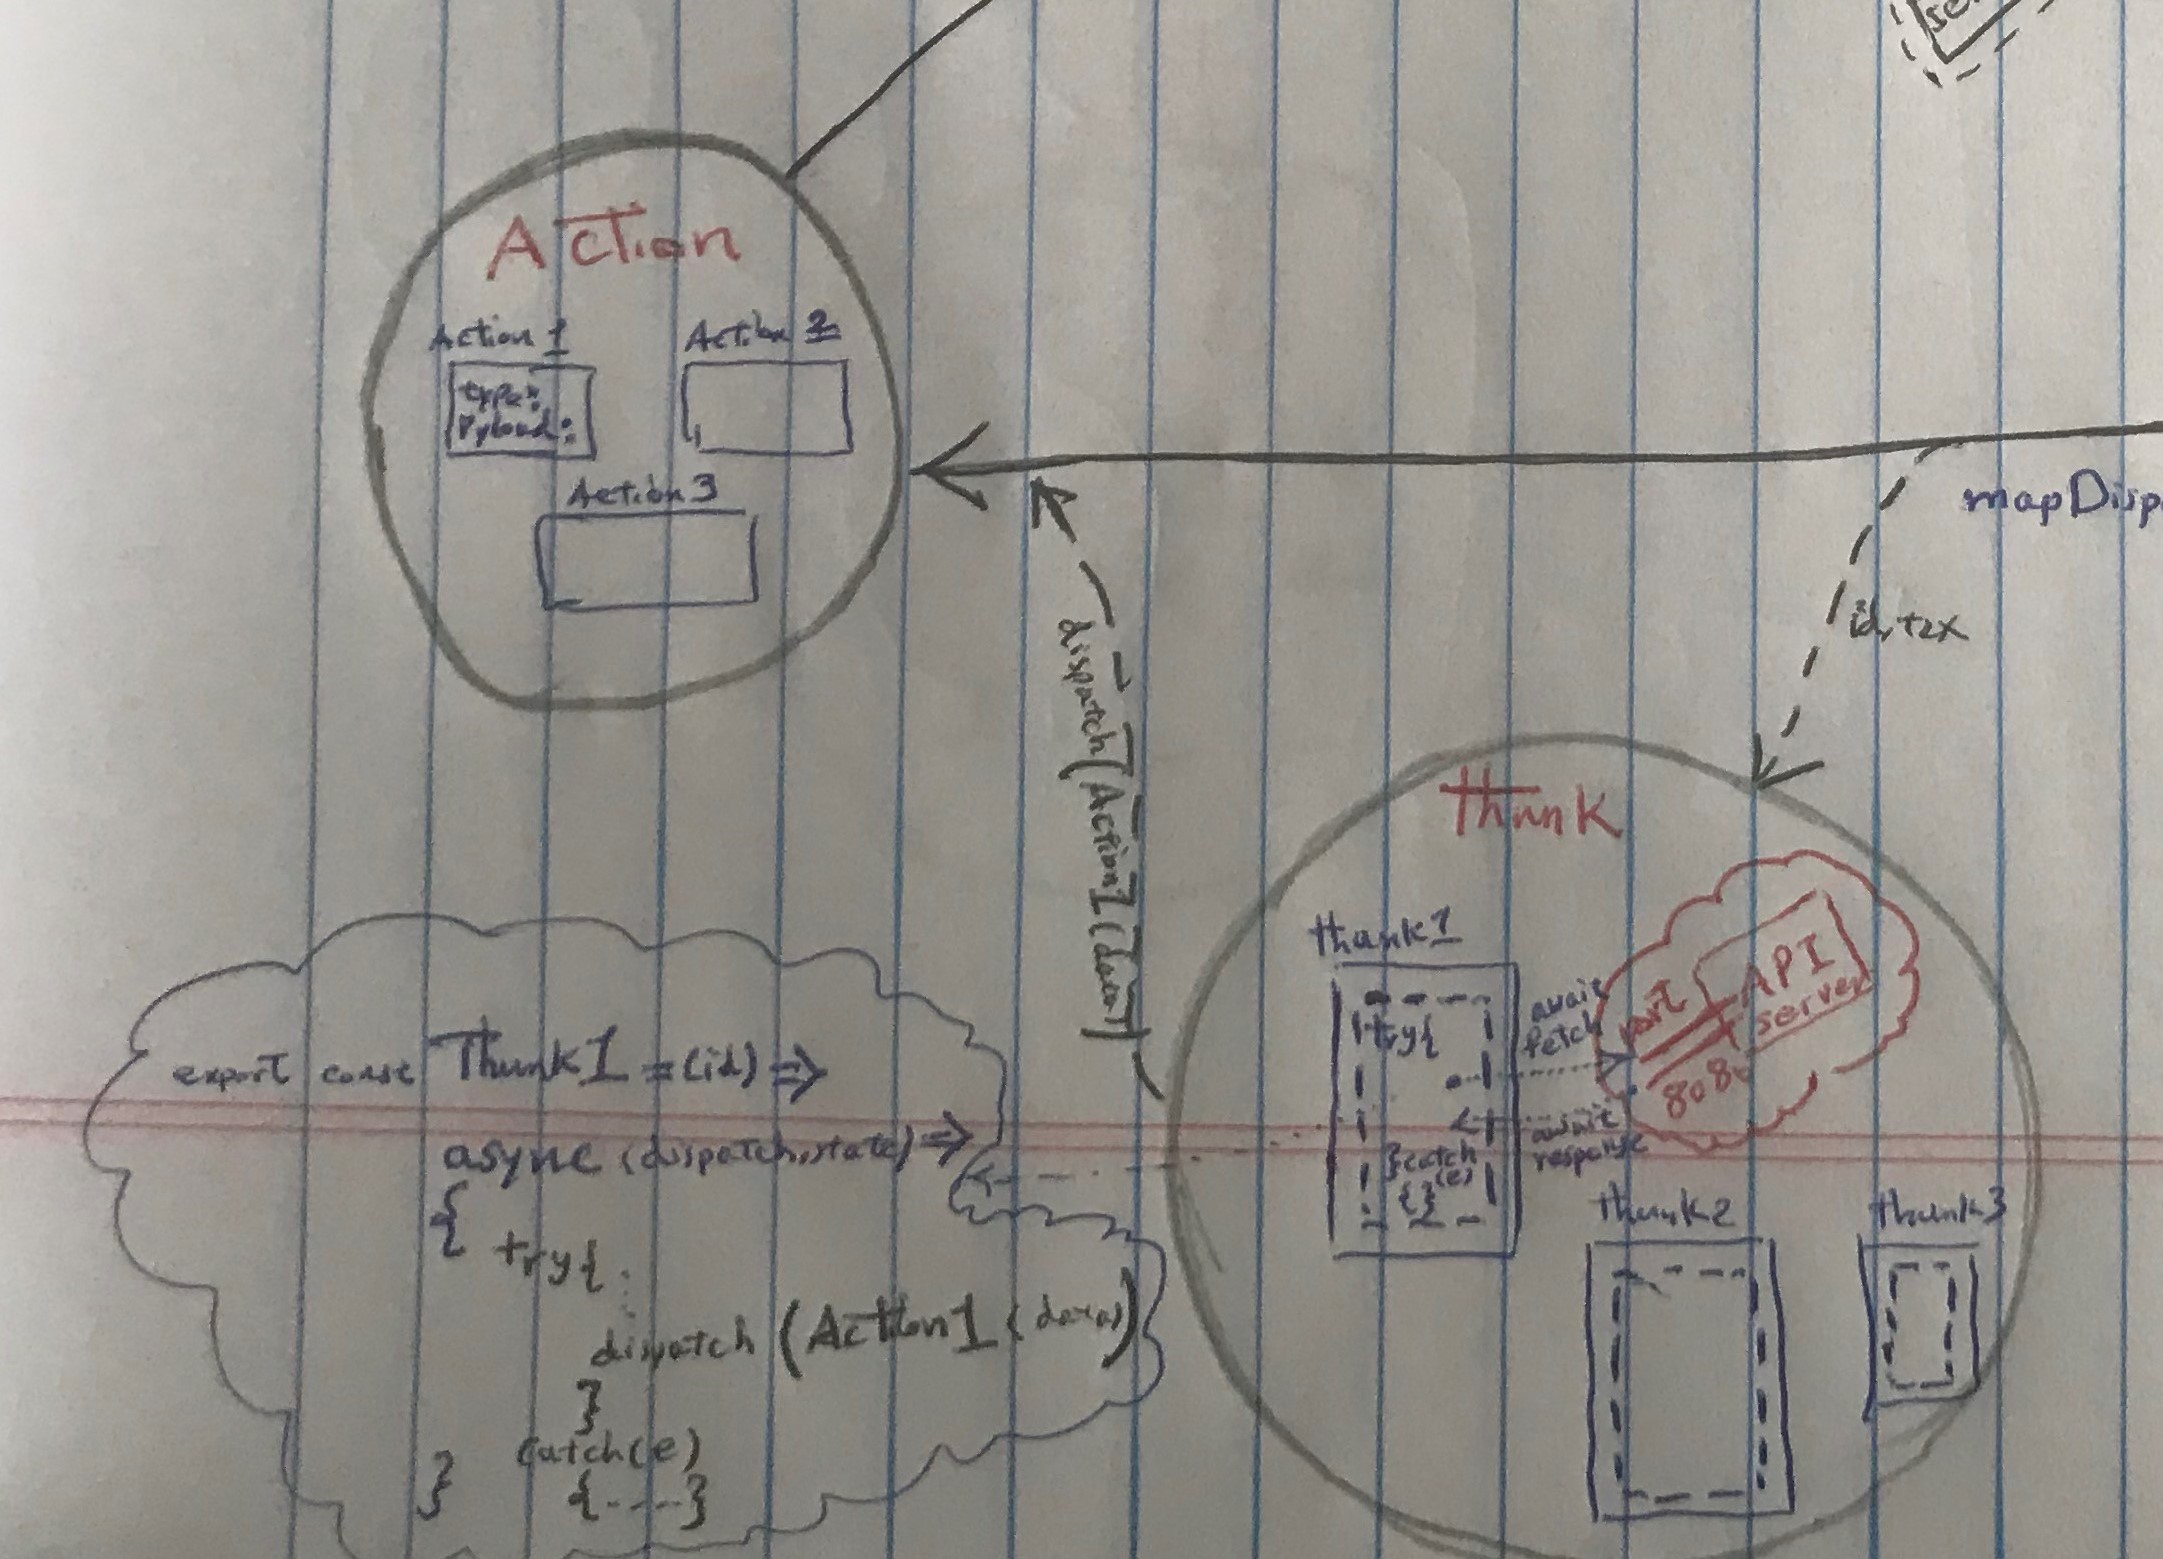 Action
Action 1
type:
Pyload:
Action 2
Action 3
mapDisp
id, txx
dispatch(Action1(data))
Thunk
thunk1
try{
}catch
(e)
{}
await
fetch
await
response
port
8080
API
server
thunk2
thunk3
export const Thunk1 = (id) =>
async (dispatch, state) =>
{
try{
dispatch (Action1 (data))
}
catch(e)
{----}
}